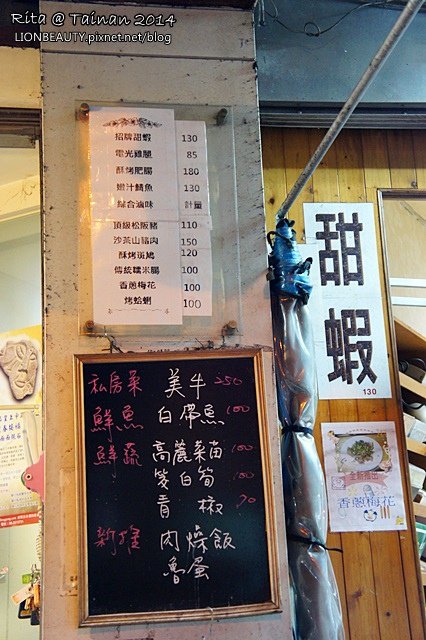 Rita @ Tainan 2014
LIONBEAUTY.pixnet.net/blog
招牌甜蝦 130
電光雞腿 85
酥烤肥腸 180
嫩汁鯖魚 130
綜合滷味 計量
頂級松阪豬 110
沙茶山豬肉 150
酥烤斑鳩 120
傳統糯米腸 100
香蔥梅花 100
烤蛤蜊 100
私房菜 美牛 250
鮮魚 白帶魚 100
鮮蔬 高麗菜苗 100
筊白筍 100
青椒 70
新推 肉燥飯
魯蛋
甜蝦
130
香蔥梅花